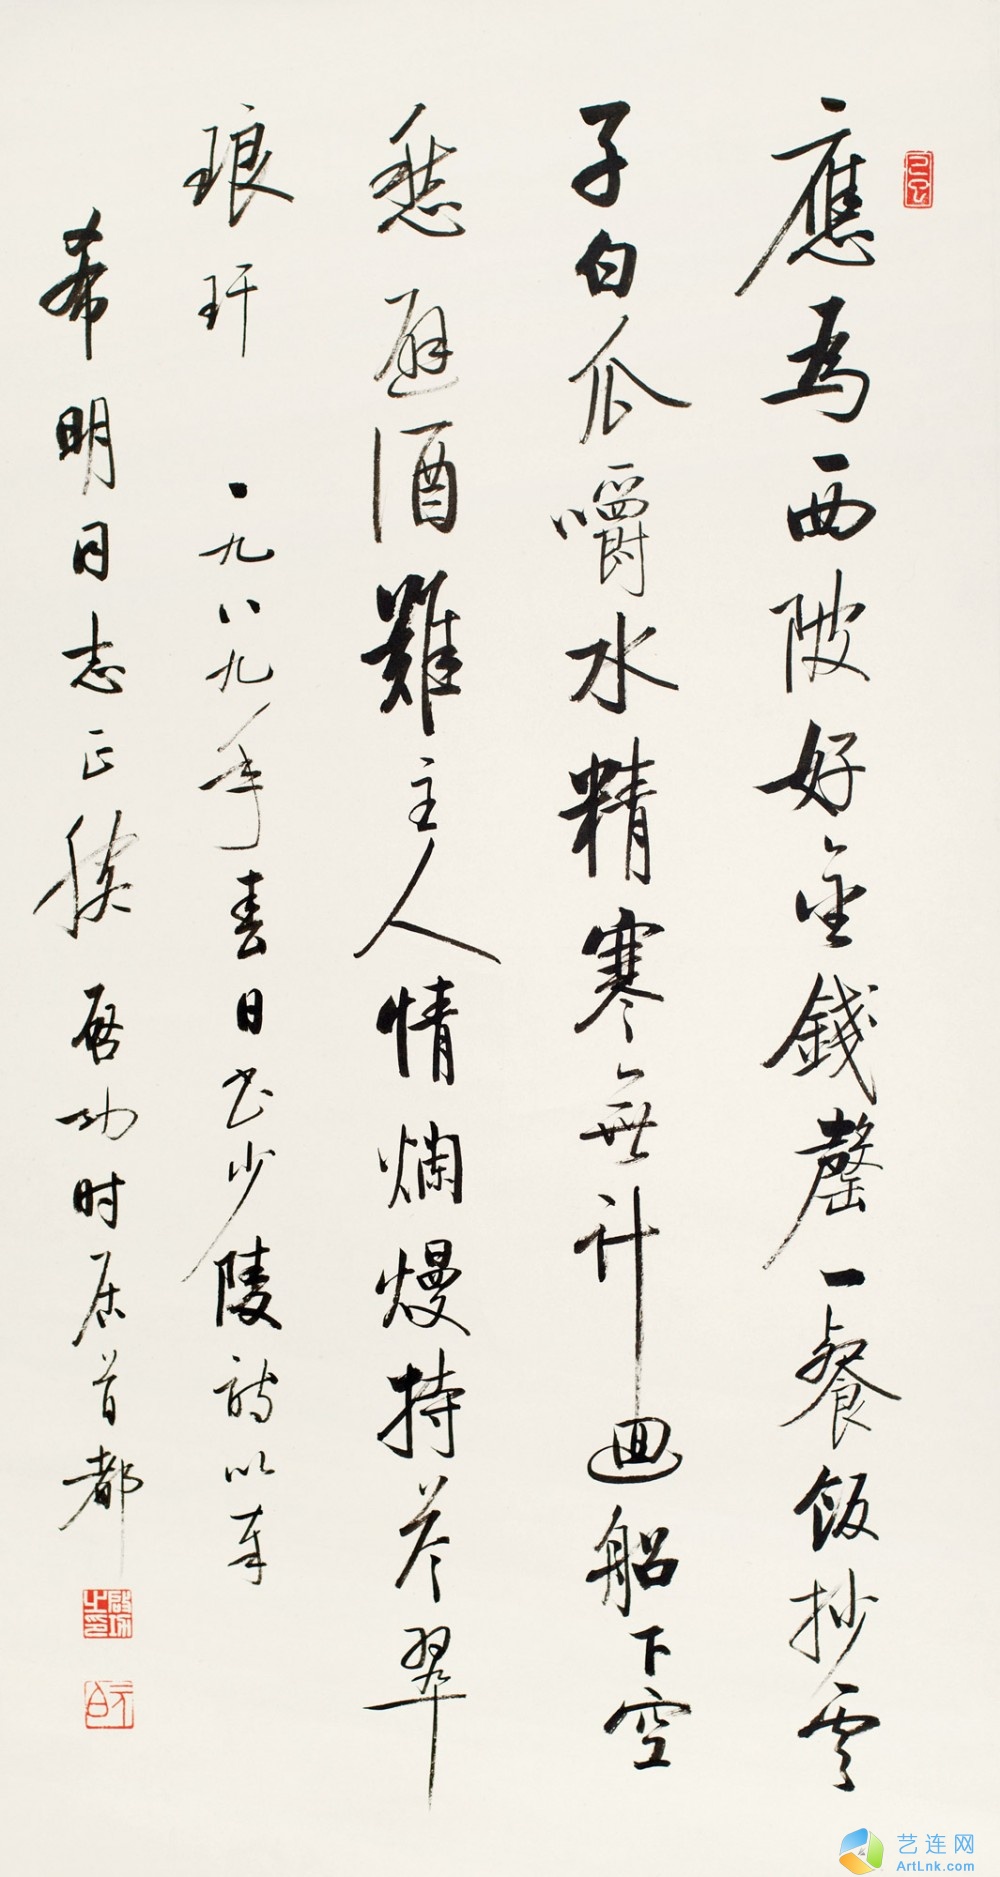 應為西陂好金錢罄一餐飯抄雲
子白瓜嚼水精寒無計迴船下空
愁避酒難主人情爛熳持荅翠
琅玕 一九八九年春日书少陵詩以奉
希明同志正腕 启功时居首都
啟功之印
元白
艺连网
ArtLnk.com